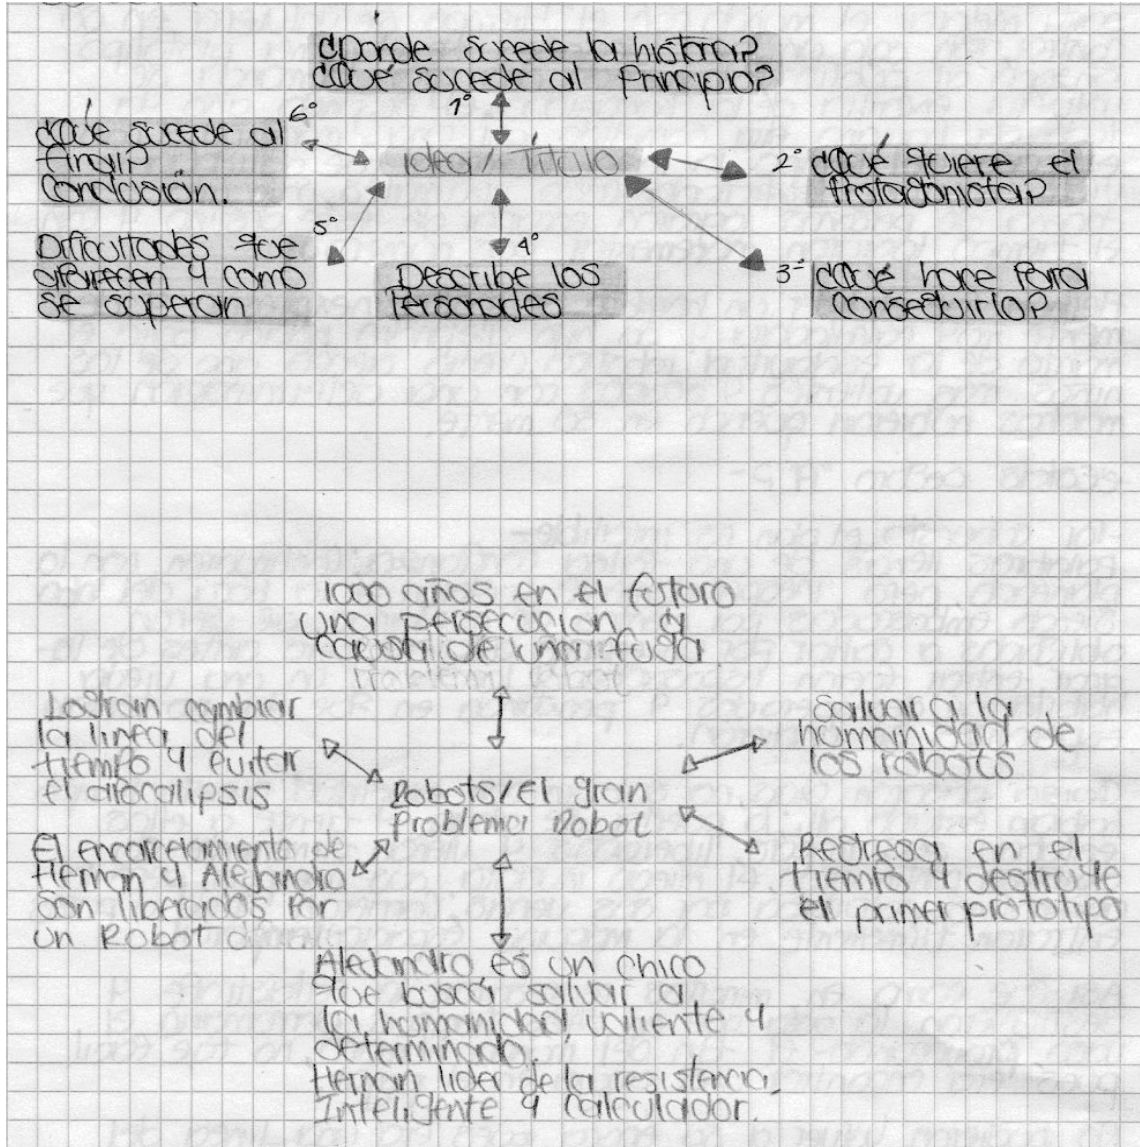 ¿Dónde sucede la historia?
¿Qué sucede al Principio?
1°
6°
¿Qué sucede al
final?
Conclusión.
Idea / Título
2° ¿Qué quiere el
Protagonista?
5°
Dificultades que
aparecen y como
se superan
4°
Describe los
Personajes
3° ¿Qué hace Para
Conseguirlo?
1000 años en el futuro
una persecución a
causa de una fuga
Logran cambiar
la linea del
tiempo y evitar
el apocalipsis
Salvar a la
humanidad de
los robots
Robots/el gran
Problema Robot
El encarcelamiento de
Hernan y Alejandro
Son liberados Por
un Robot
Regresa en el
tiempo y destruye
el primer prototipo
Alejandro es un chico
que busca salvar a
la humanidad, valiente y
determinado.
Hernan lider de la resistencia,
Inteligente y calculador.